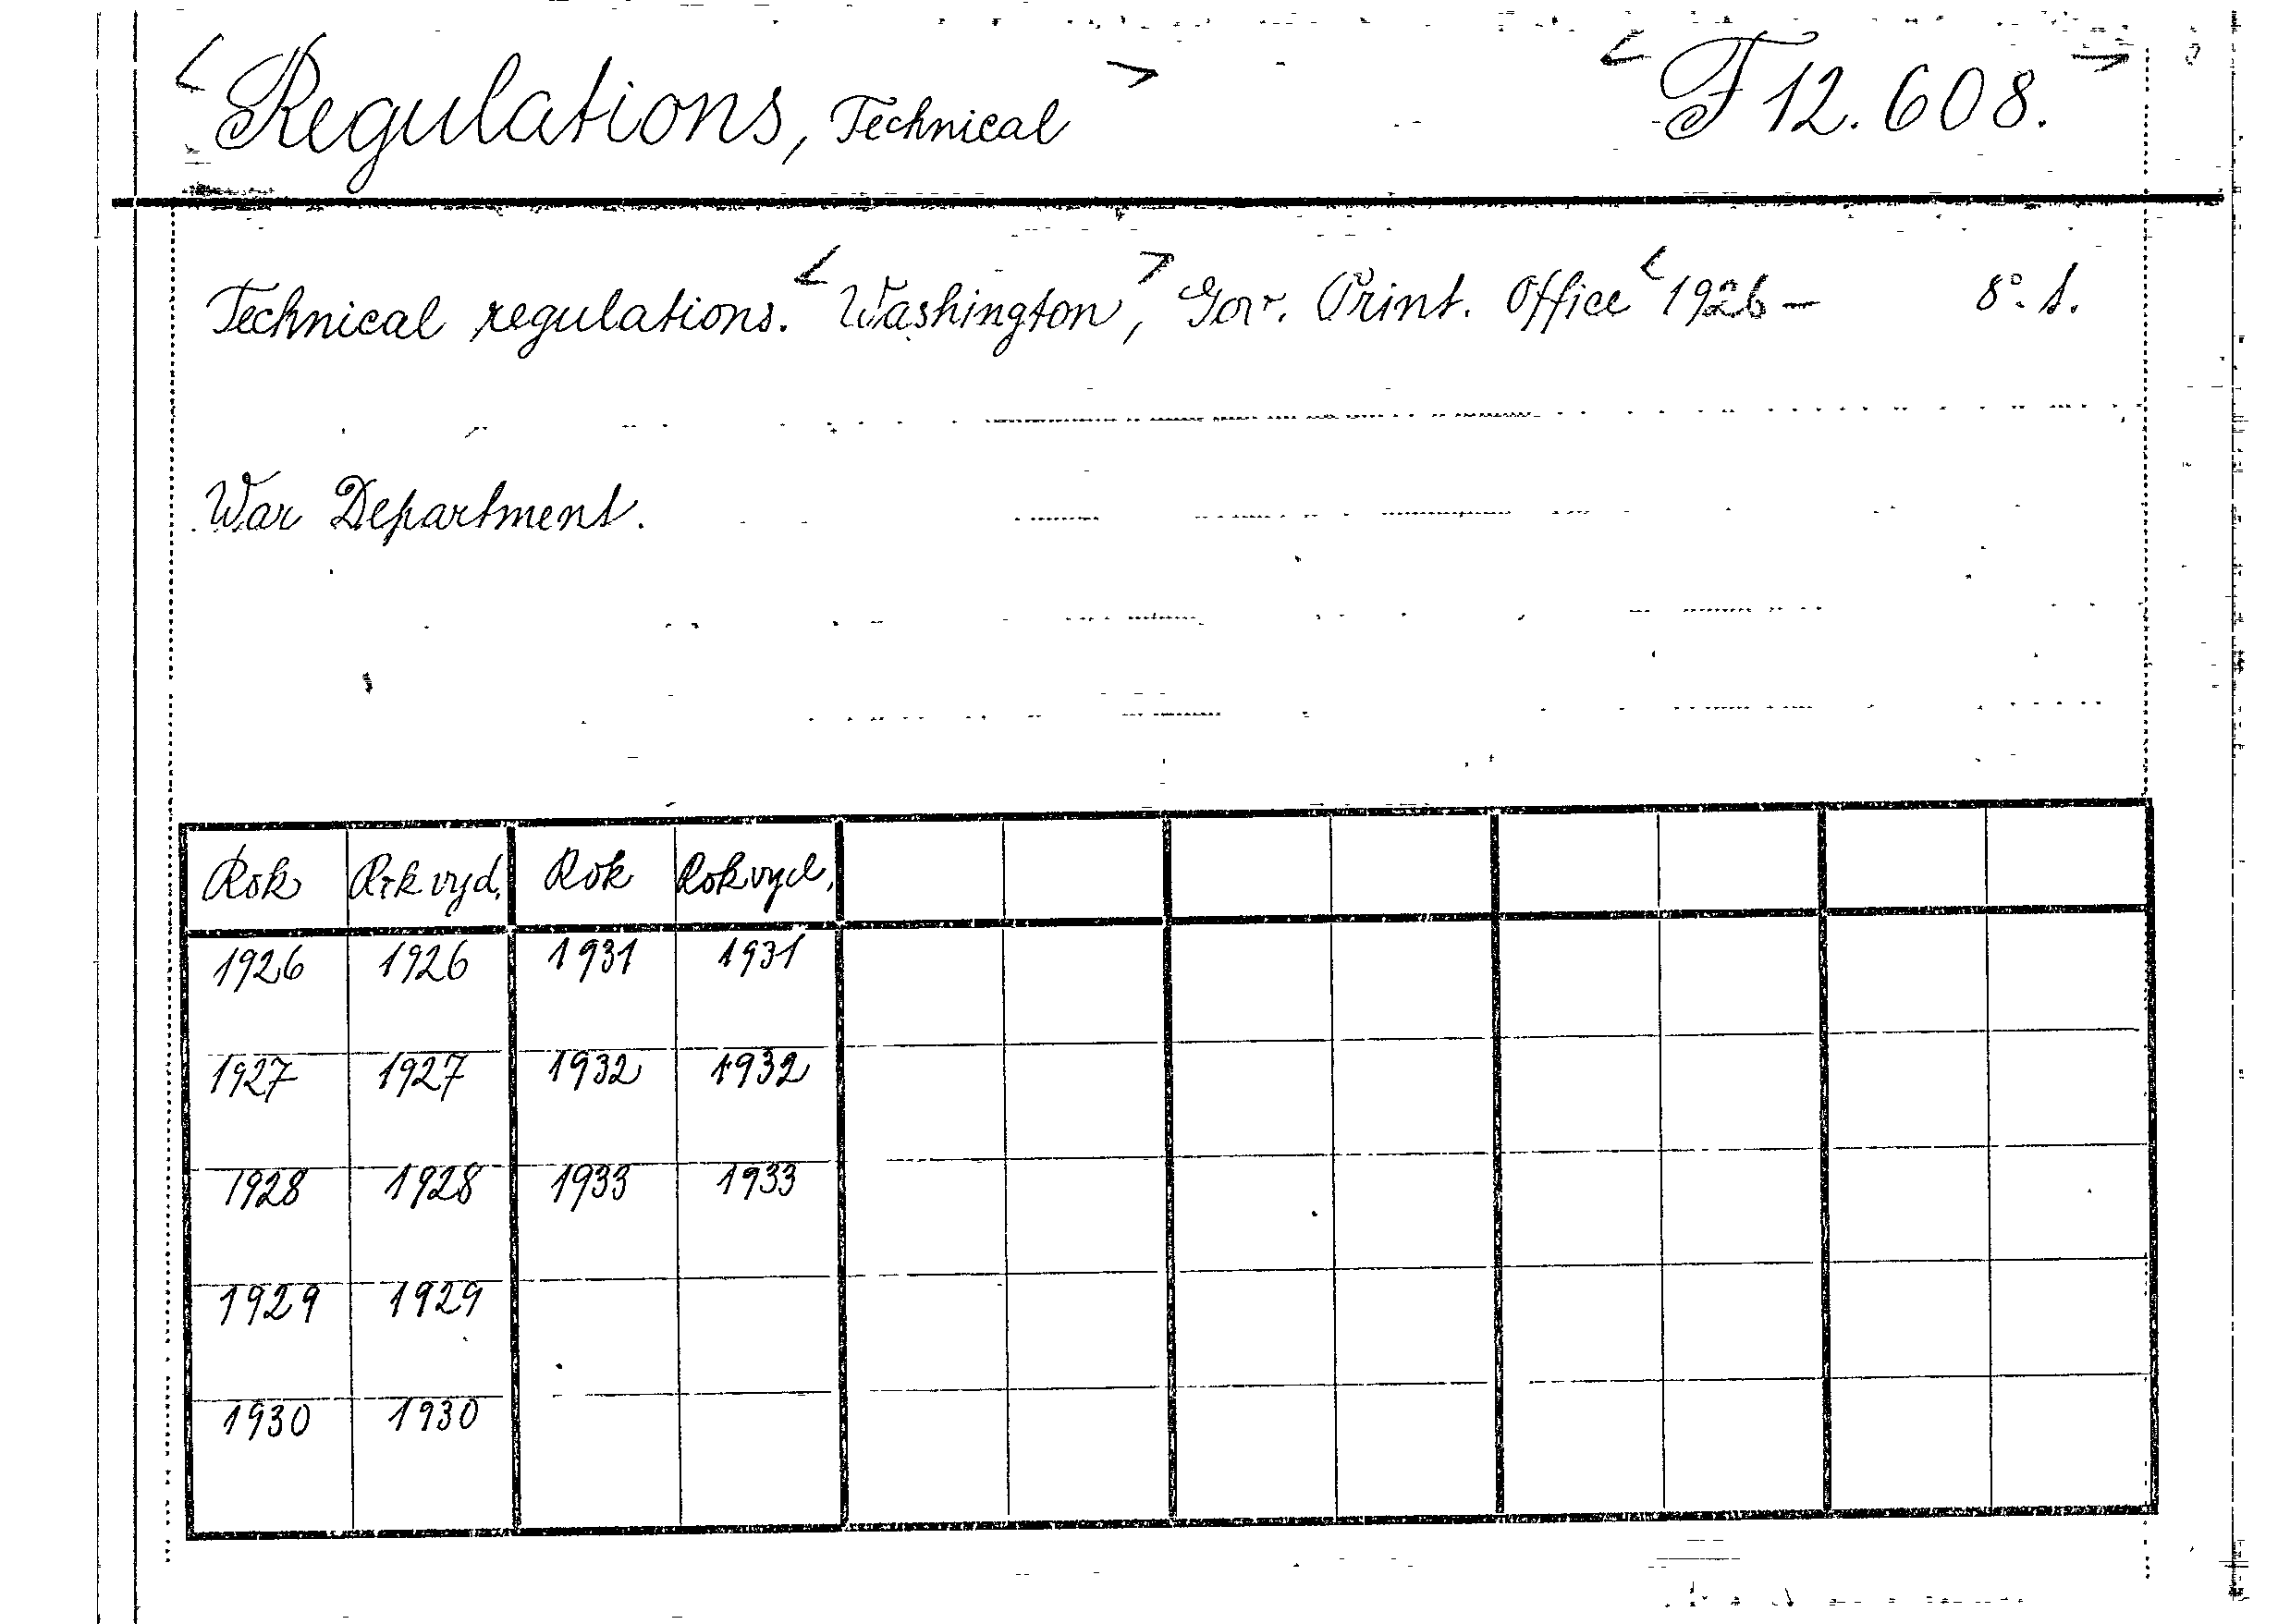 < Regulations, Technical > < F 12.608. >
Technical regulations. < Washington, > Gov. Print. Office < 1926 – 8°. s.
War Department.
Rok Rok vyd. Rok Rok vyd.
1926 1926 1931 1931
1927 1927 1932 1932
1928 1928 1933 1933
1929 1929
1930 1930